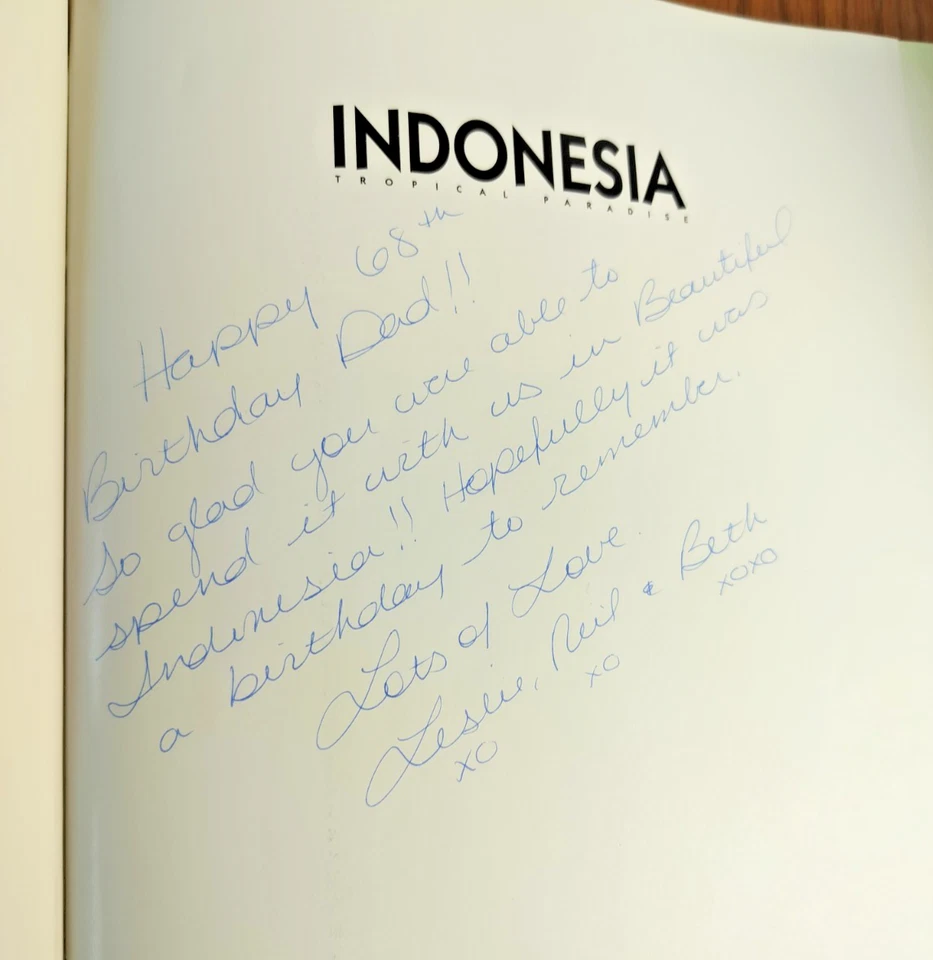 INDONESIA
TROPICAL PARADISE
Happy 68th
Birthday Dad!!
So glad you were able to
spend it with us in Beautiful
Indonesia!! Hopefully it was
a birthday to remember.
Lots of Love.
Leslie, Neil & Beth
xo xo xoxo